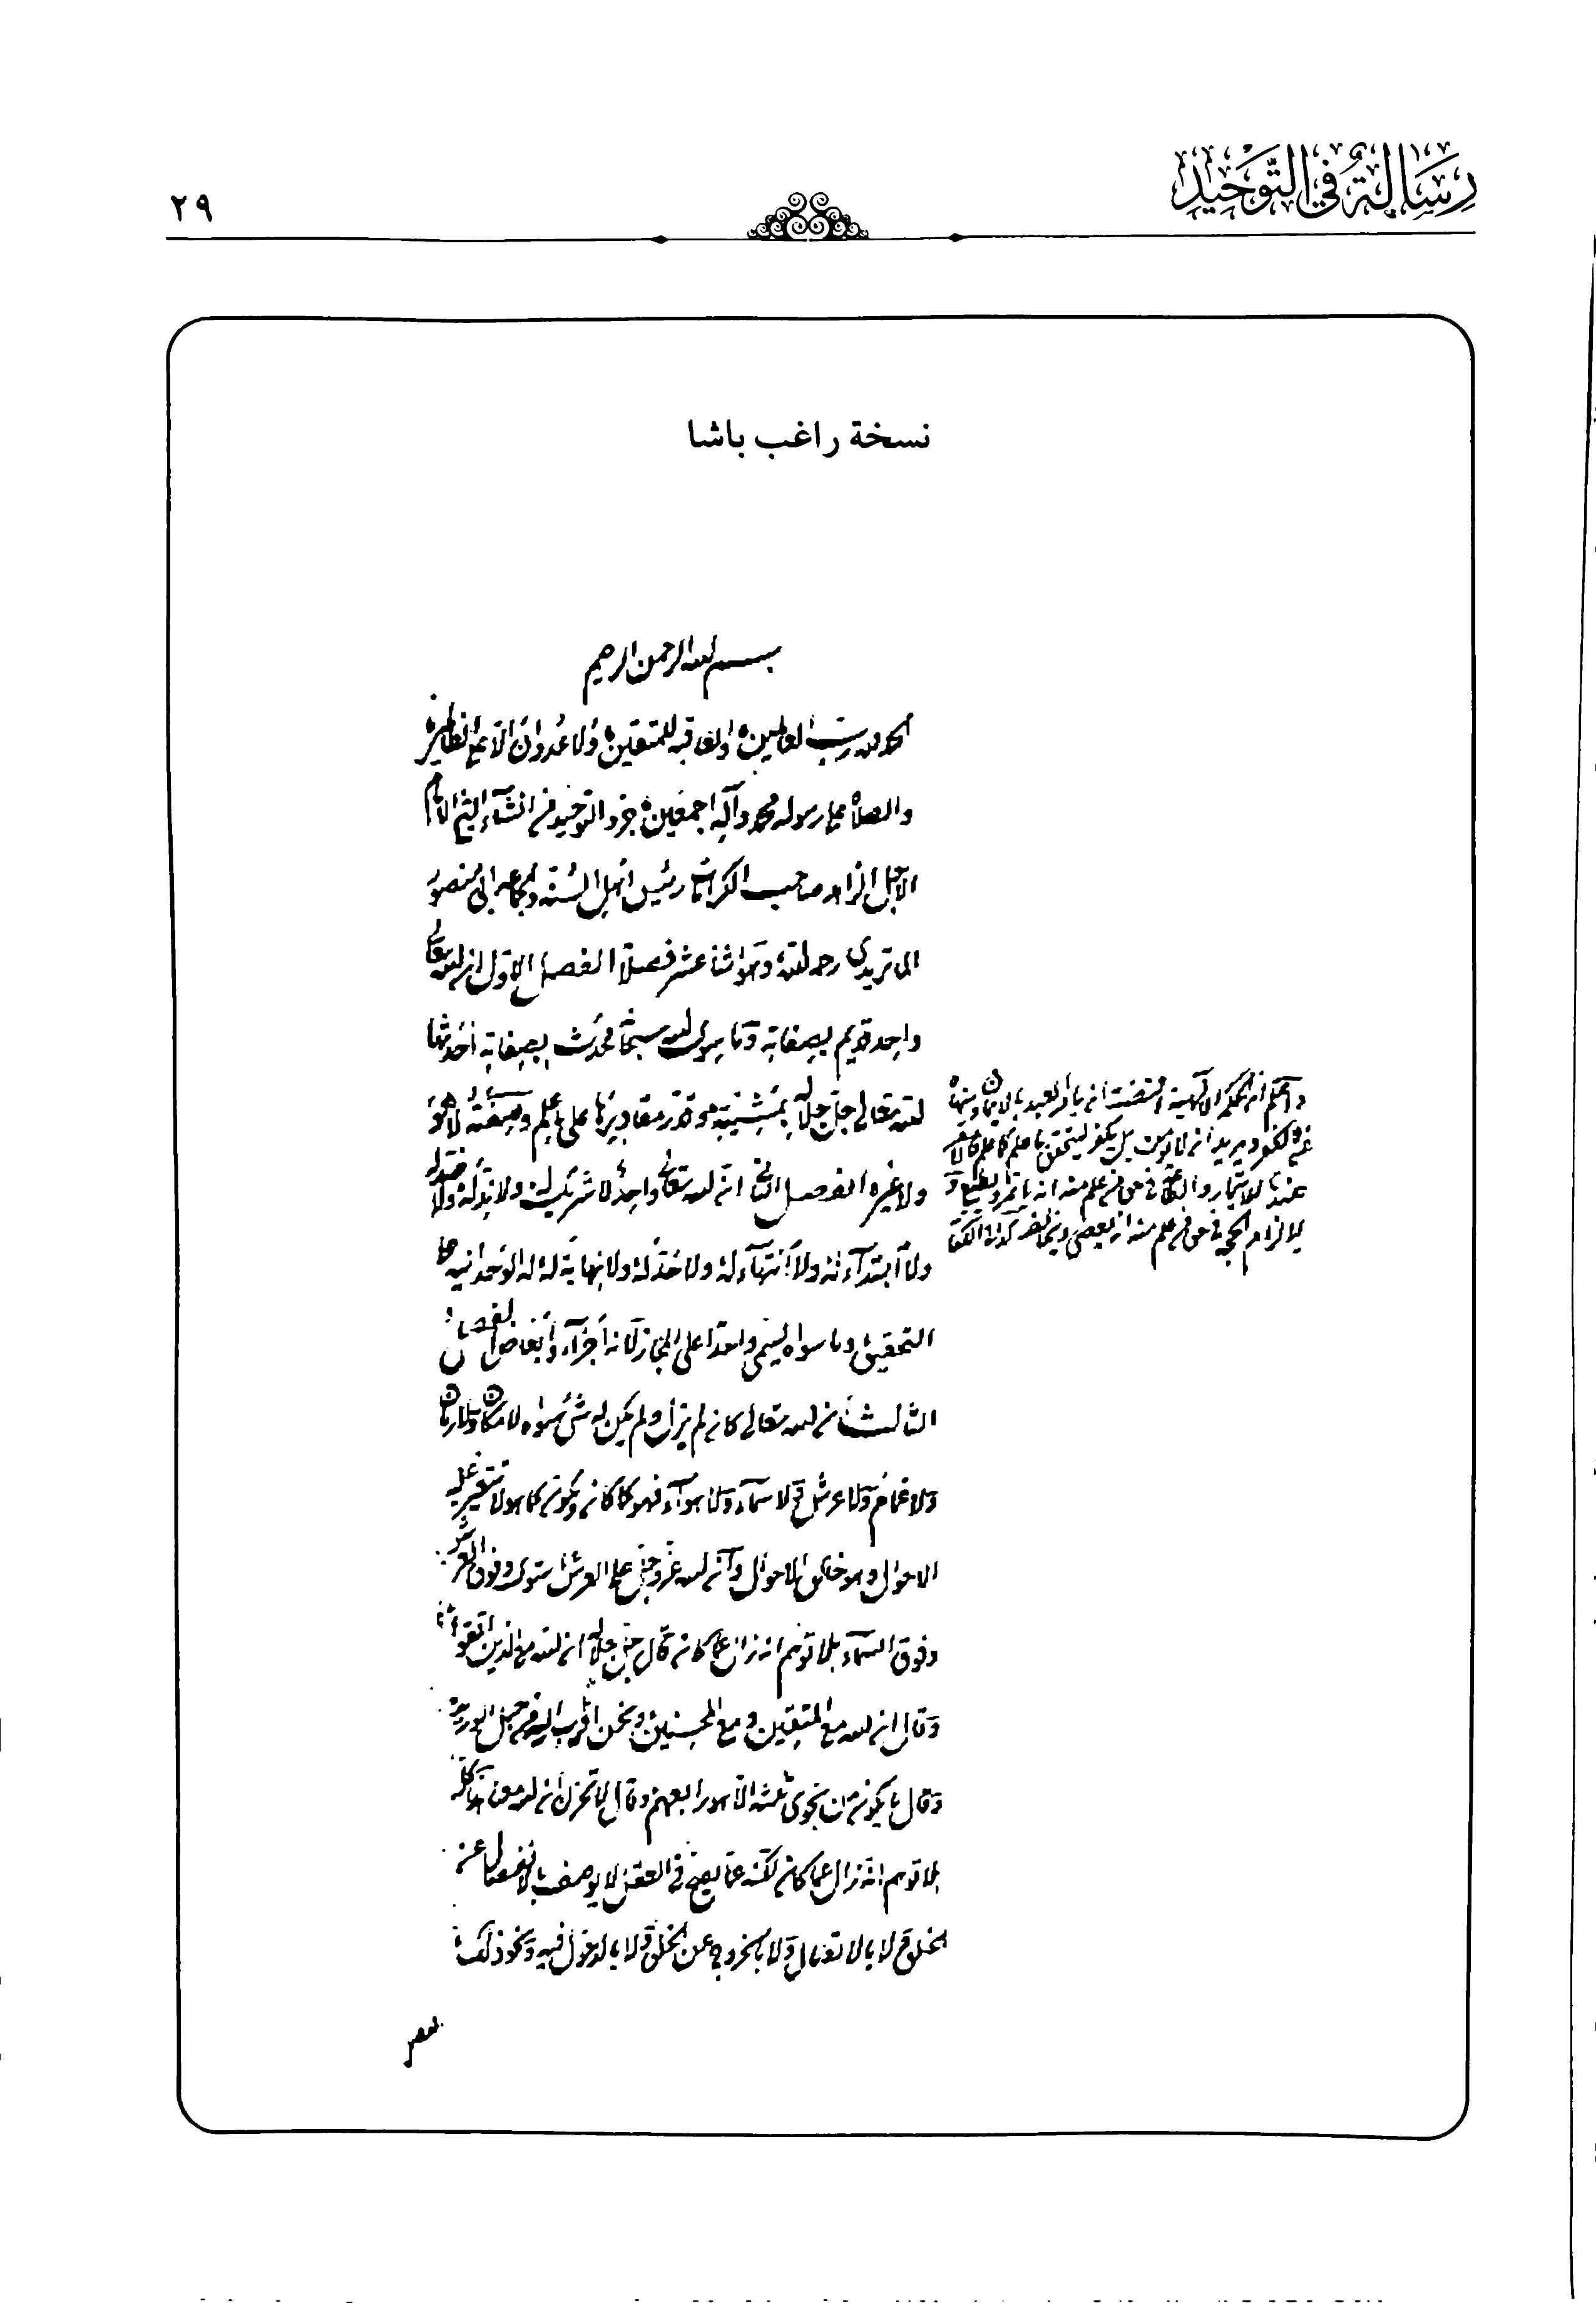 رسالة في التوحيد
٢٩
نسخة راغب باشا
بسم الله الرحمن الرحيم
الحمد لله رب العالمين والعاقبة للمتقين ولا عدوان الا على الظالمين
والصلاة على رسوله محمد وآله اجمعين جزء التوحيد من انشاء الشيخ الامام
الاجل الزاهد صاحب الكرامات رئيس اهل السنة والجماعة ابى منصور
الماتريدى رحمه الله وهو اثنا عشر فصلا الفصل الاول ان الله تعالى
واحد قديم بصفاته وما سوى الله سبحانه محدث بصفاته احدثها
الله تعالى جل جلاله بمشيته وقدر مقاديرها على علم وصفته لا هو
ولا غيره الفصل الثانى ان الله تعالى واحد لا شريك له ولا ند له ولا ضد له
ولا ابتداء له ولا انتهاء له ولا حد له ولا نهاية له له الوحدانية على
التحقيق وما سواه يسمى واحدا على المجاز لانه اجزاء وابعاض الفصل
الثالث ان الله تعالى كان لم يزل ولم يكن له شئ سواه لا مكان ولا زمان
ولا غمام ولا عرش ولا سماء ولا هواء فهو كما كان ويكون كما هو لا تتغير عليه
الاحوال وهو خالق الاحوال وان الله عز وجل على العرش استوى وفوق العرش
وفوق السماء بلا توهم انه زال عما كان قال جل جلاله ان الله مع الذين اتقوا
وقال ان الله مع المتقين ومع المحسنين ونحن اقرب اليه من حبل الوريد
وقال ما يكون من نجوى ثلثة الا هو رابعهم وقال لا تحزن ان الله معنا
بلا توهم انه زال عما كان لكنه عما يصح فى العقل لا يوصف بالانفصال عن
الخلق ولا بالاتصال ولا بالخروج عن الخلق ولا بالدخول فيه ونحو ذلك
واعلم ان الحكم الالهية اقتضت ان يامر العبد بالايمان وينهاه
عن الكفر ويريد ان لا يؤمن بل يكفر ليتحقق ما علم كما علم